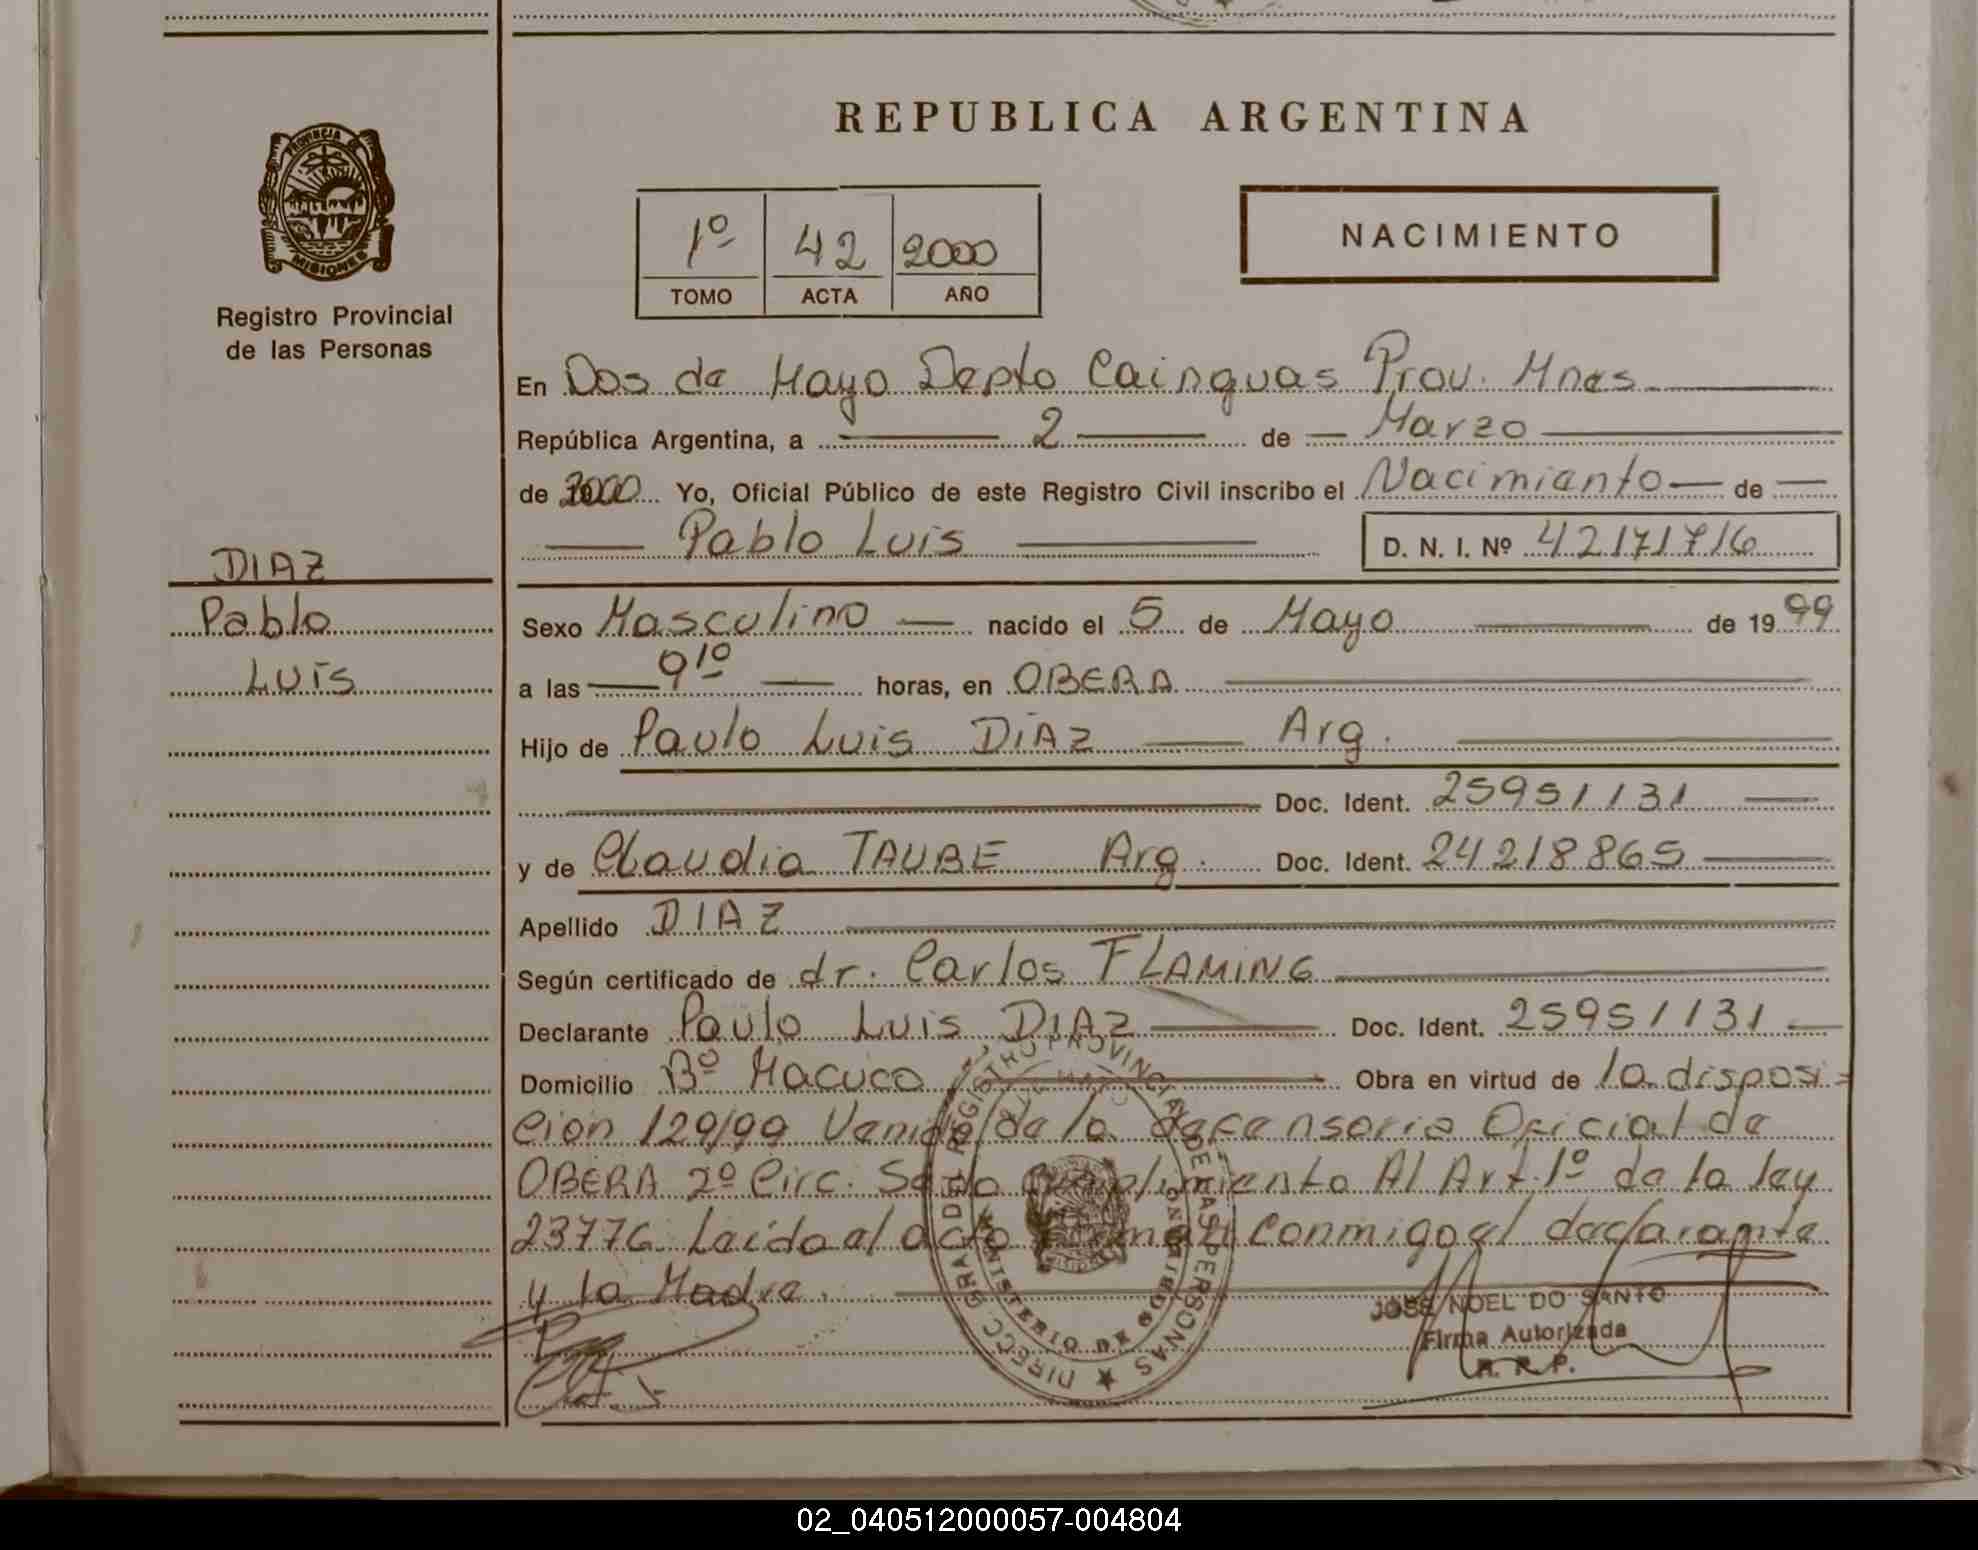 REPUBLICA ARGENTINA
PROVINCIA
MISIONES
Registro Provincial
de las Personas
1º 42 2000
TOMO ACTA AÑO
NACIMIENTO
En Dos de Mayo Depto Cainguas Prov. Mnes
República Argentina, a 2 de Marzo
de 2000 Yo, Oficial Público de este Registro Civil inscribo el Nacimiento de
Pablo Luis D. N. I. Nº 42171716
DIAZ
Pablo
Luis
Sexo Masculino nacido el 5 de Mayo de 1999
a las 9¹⁰ horas, en OBERA
Hijo de Paulo Luis DIAZ Arg.
Doc. Ident. 25951131
y de Claudia TAUBE Arg. Doc. Ident. 24218865
Apellido DIAZ
Según certificado de dr. Carlos FLAMING
Declarante Paulo Luis DIAZ Doc. Ident. 25951131
Domicilio Bº Macuco Obra en virtud de la disposi=
cion 129/99 Venida de la defensoria Oficial de
OBERA 2º Circ. Se da cumplimiento Al Art. 1º de la ley
23776. Leído el acta firman conmigo el declarante
y la Madre.
DIRECC. GRAL. DEL REGISTRO PROVINCIAL DE LAS PERSONAS
MINISTERIO DE GOBIERNO
JOSE NOEL DO SANTO
Firma Autorizada
R. R. P.
02_040512000057-004804